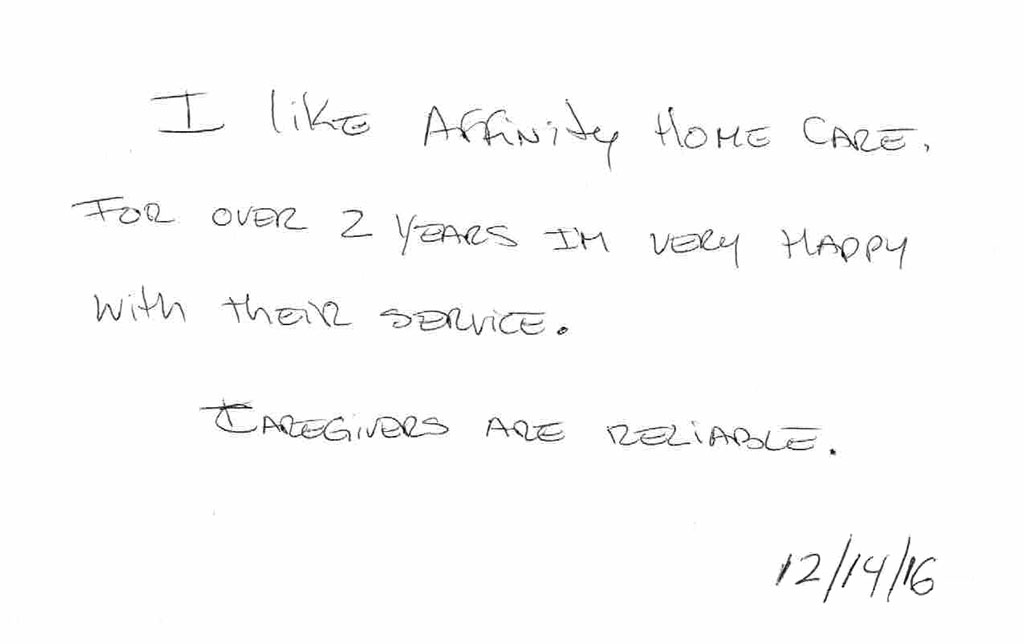 I like Affinity Home Care.
For over 2 years Im very happy
with their service.
Caregivers are reliable.
12/14/16